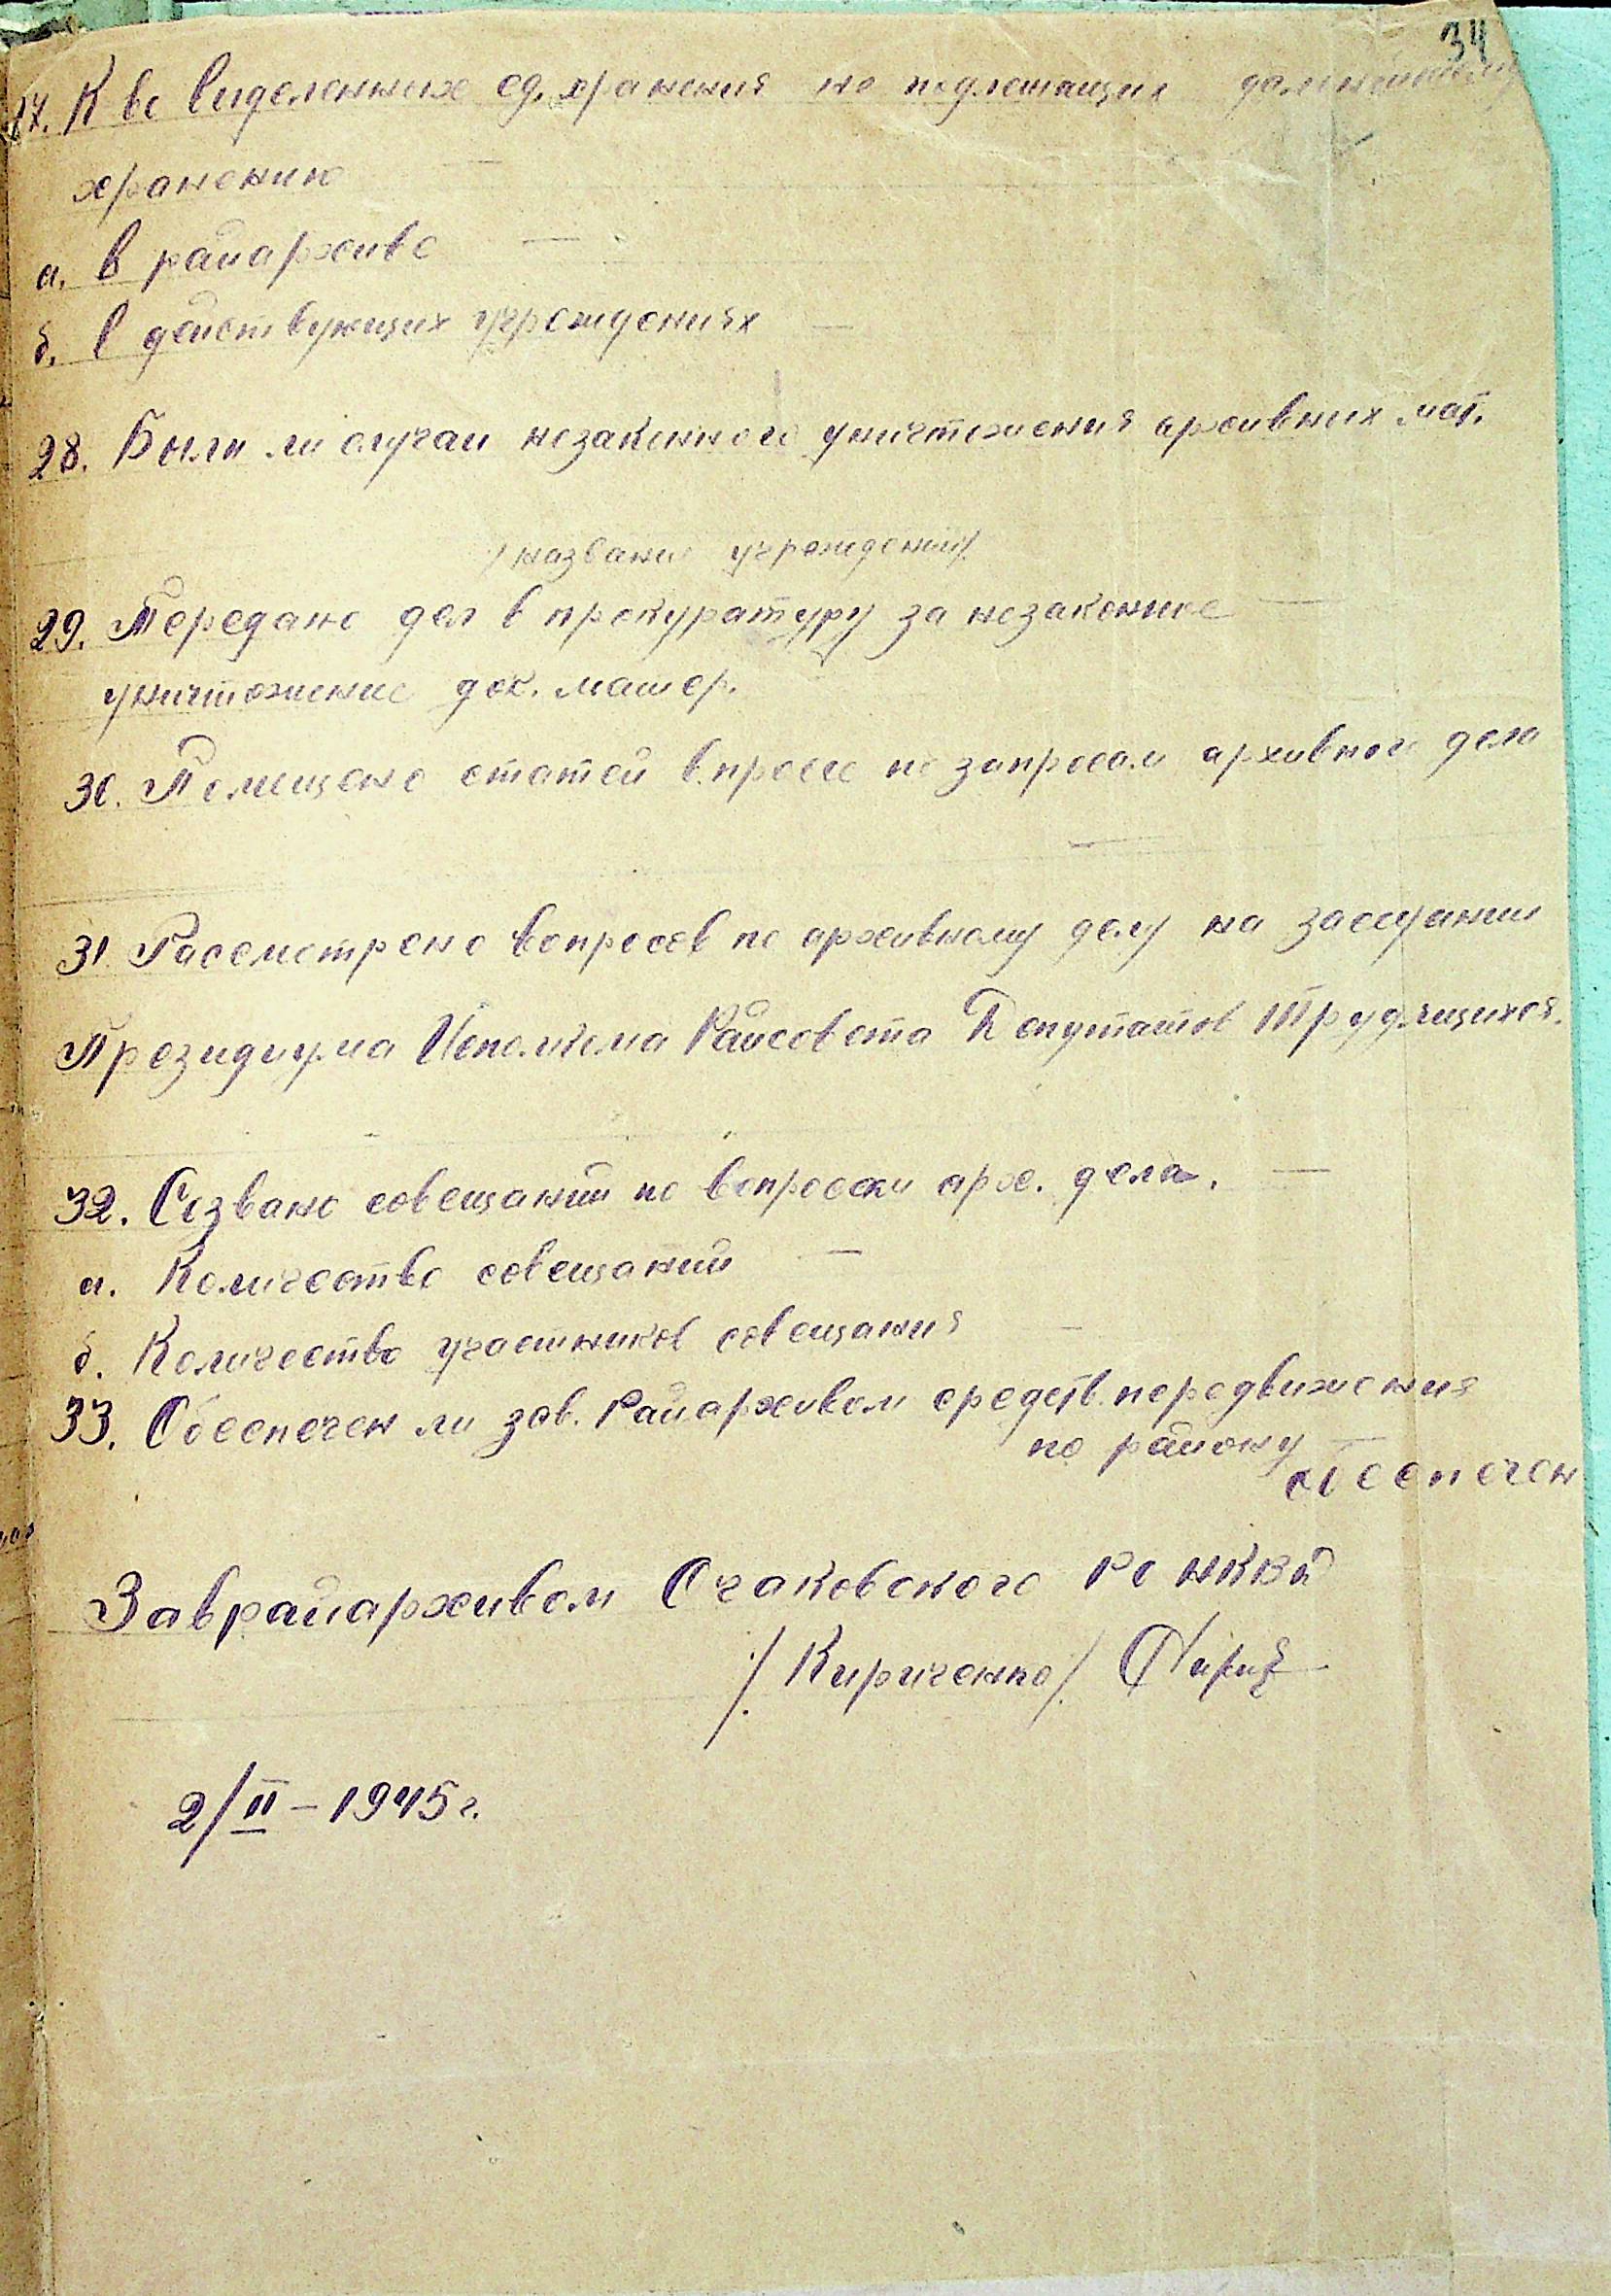 34
27. К во виделенных ед. хранения не подлежащих дальнейшему
хранению —
а. в райархиве —
б. в действующих учреждениях —
28. Были ли случаи незаконного уничтожения архивных мат.
/названия учреждений/.
29. Передано дел в прокуратуру за незаконное —
уничтожение док. матер.
30. Помещено статей в прессе по запросам архивного дела
—
31 Рассмотрено вопросов по архивному делу на заседании
Президиума Исполкома Райсовета Депутатов Трудящихся.
32. Созвано совещаний по вопросам арх. дела. —
а. Количество совещаний —
б. Количество участников совещания —
33. Обеспечен ли зав. Райархивом средств. передвижения
по району —
обеспечен
Заврайархивом Очаковского РО НКВД
/Кириченко/
2/II – 1945 г.